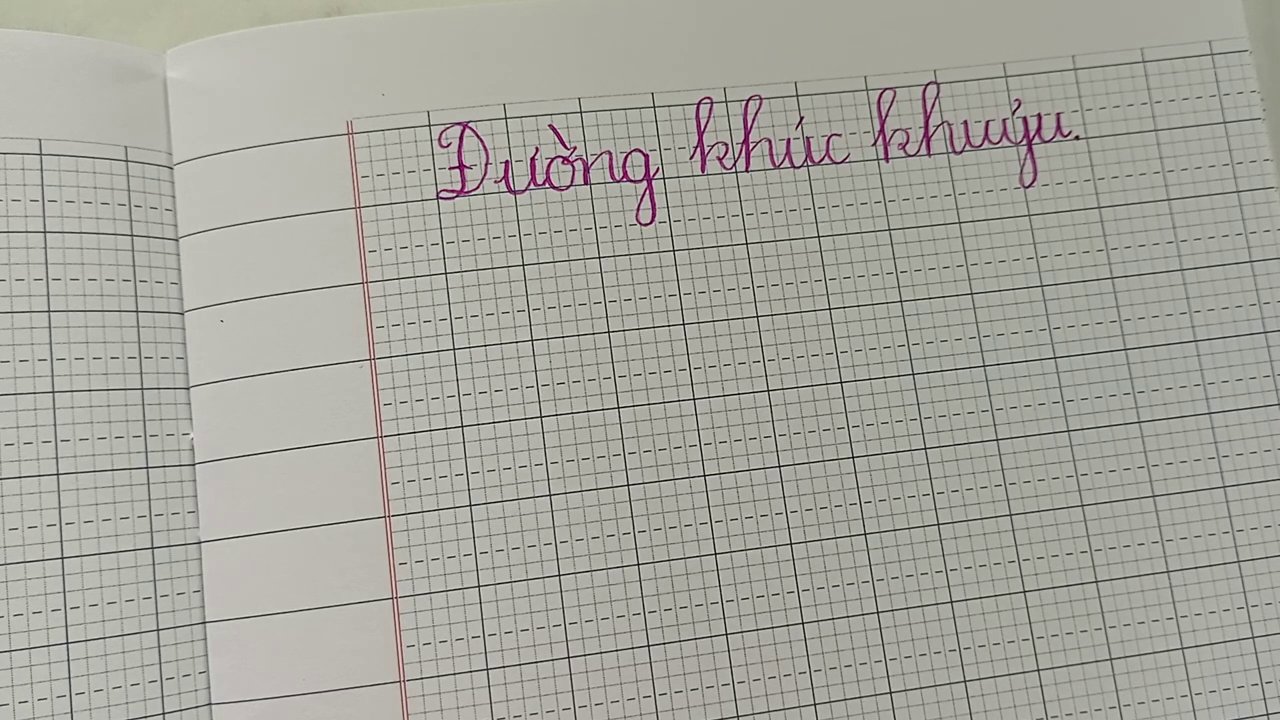 Đường khúc khuỷu.